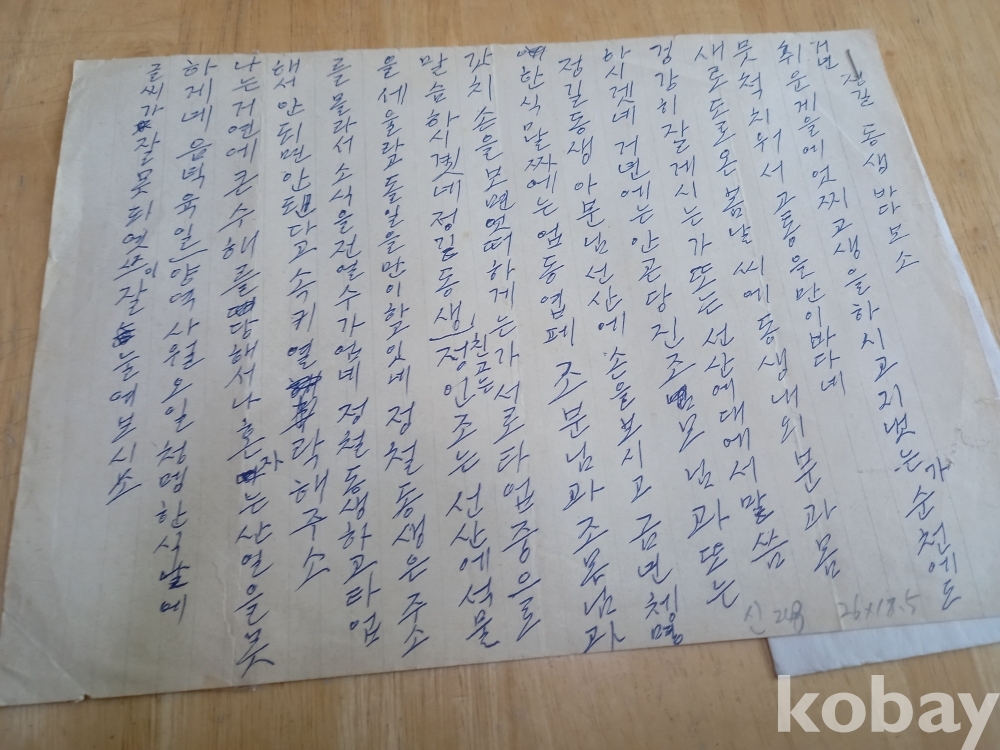 정길 동생 바다 보소
거년 취운 게을에 엇찌 고생을 하시고 지냇는가 순천에도
뭇척 치워서 고통을 만이 바다네
새로 도로온 봄날씨에 동생 내외분과 몸
겅강히 잘 게시는가 또는 선산에 대에서 말씀
하시겟네 거년에는 안곤당 진조모님과 또는
정길 동생 아문님 선산에 손을 보시고 금년 쳉명
한식 말짜에는 엎동 엽페 조분님과 조몸님과
갗치 손을 보면 엇떠하게는가 서로 타업 중을로
말슴하시겟네 정길 동생 친고는 정인조는 선산에 석물
을 세울라고 돌일을 만이 하고 있네 정철 동생은 주소
를 몰라서 소식을 전열 수가 업네 정철 동생하고 타업
해서 안되면 안된다고 속키 열락해주소
나는 거연에 큰 수해를 당해서 나 혼자는 산열을 못
하게네 음벽 육일 양역 사월 오일 청멩 한식날에
글씨가 잘못 되엿스이 잘 눌여보시소
신248 26×18.5
kobay